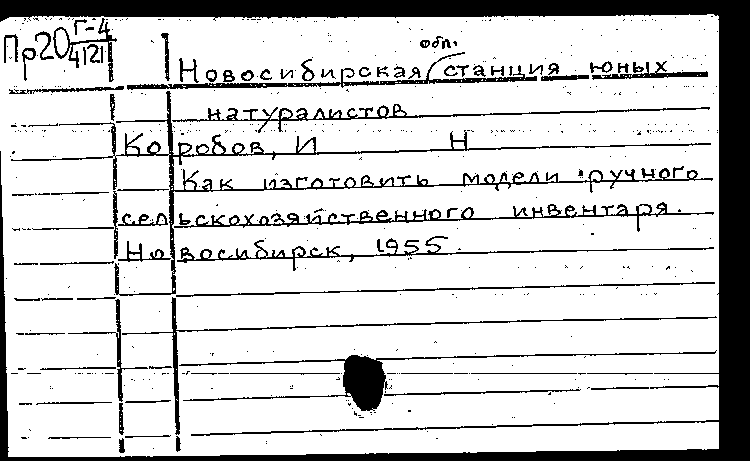 Пр20 Г-4
4121
обл.
Новосибирская станция юных
натуралистов
Коробов, И Н
Как изготовить модели ручного
сельскохозяйственного инвентаря.
Новосибирск, 1955.